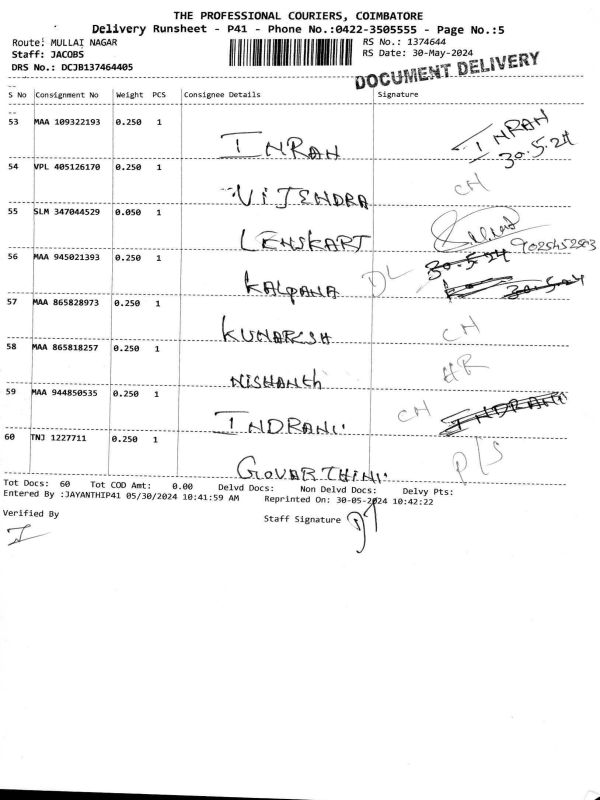 THE PROFESSIONAL COURIERS, COIMBATORE
Delivery Runsheet - P41 - Phone No.:0422-3505555 - Page No.:5
Route: MULLAI NAGAR RS No.: 1374644
Staff: JACOBS RS Date: 30-May-2024
DRS No.: DCJB137464405 DOCUMENT DELIVERY
S No Consignment No Weight PCS Consignee Details Signature
53 MAA 109322193 0.250 1 INRAN INRAN
30.5.24
54 VPL 405126170 0.250 1 VIJENDRA CH
55 SLM 347044529 0.050 1 LENSKART 9025452503
56 MAA 945021393 0.250 1 KALPANA DL 30.5.24
30.5.24
57 MAA 865828973 0.250 1 KUNARESH CH
58 MAA 865818257 0.250 1 NISHANTH HR
59 MAA 944850535 0.250 1 INDRANI CH INDRANI
60 TNJ 1227711 0.250 1 GOVARTHINI P/S
Tot Docs: 60 Tot COD Amt: 0.00 Delvd Docs: Non Delvd Docs: Delvy Pts:
Entered By :JAYANTHIP41 05/30/2024 10:41:59 AM Reprinted On: 30-05-2024 10:42:22
Verified By Staff Signature